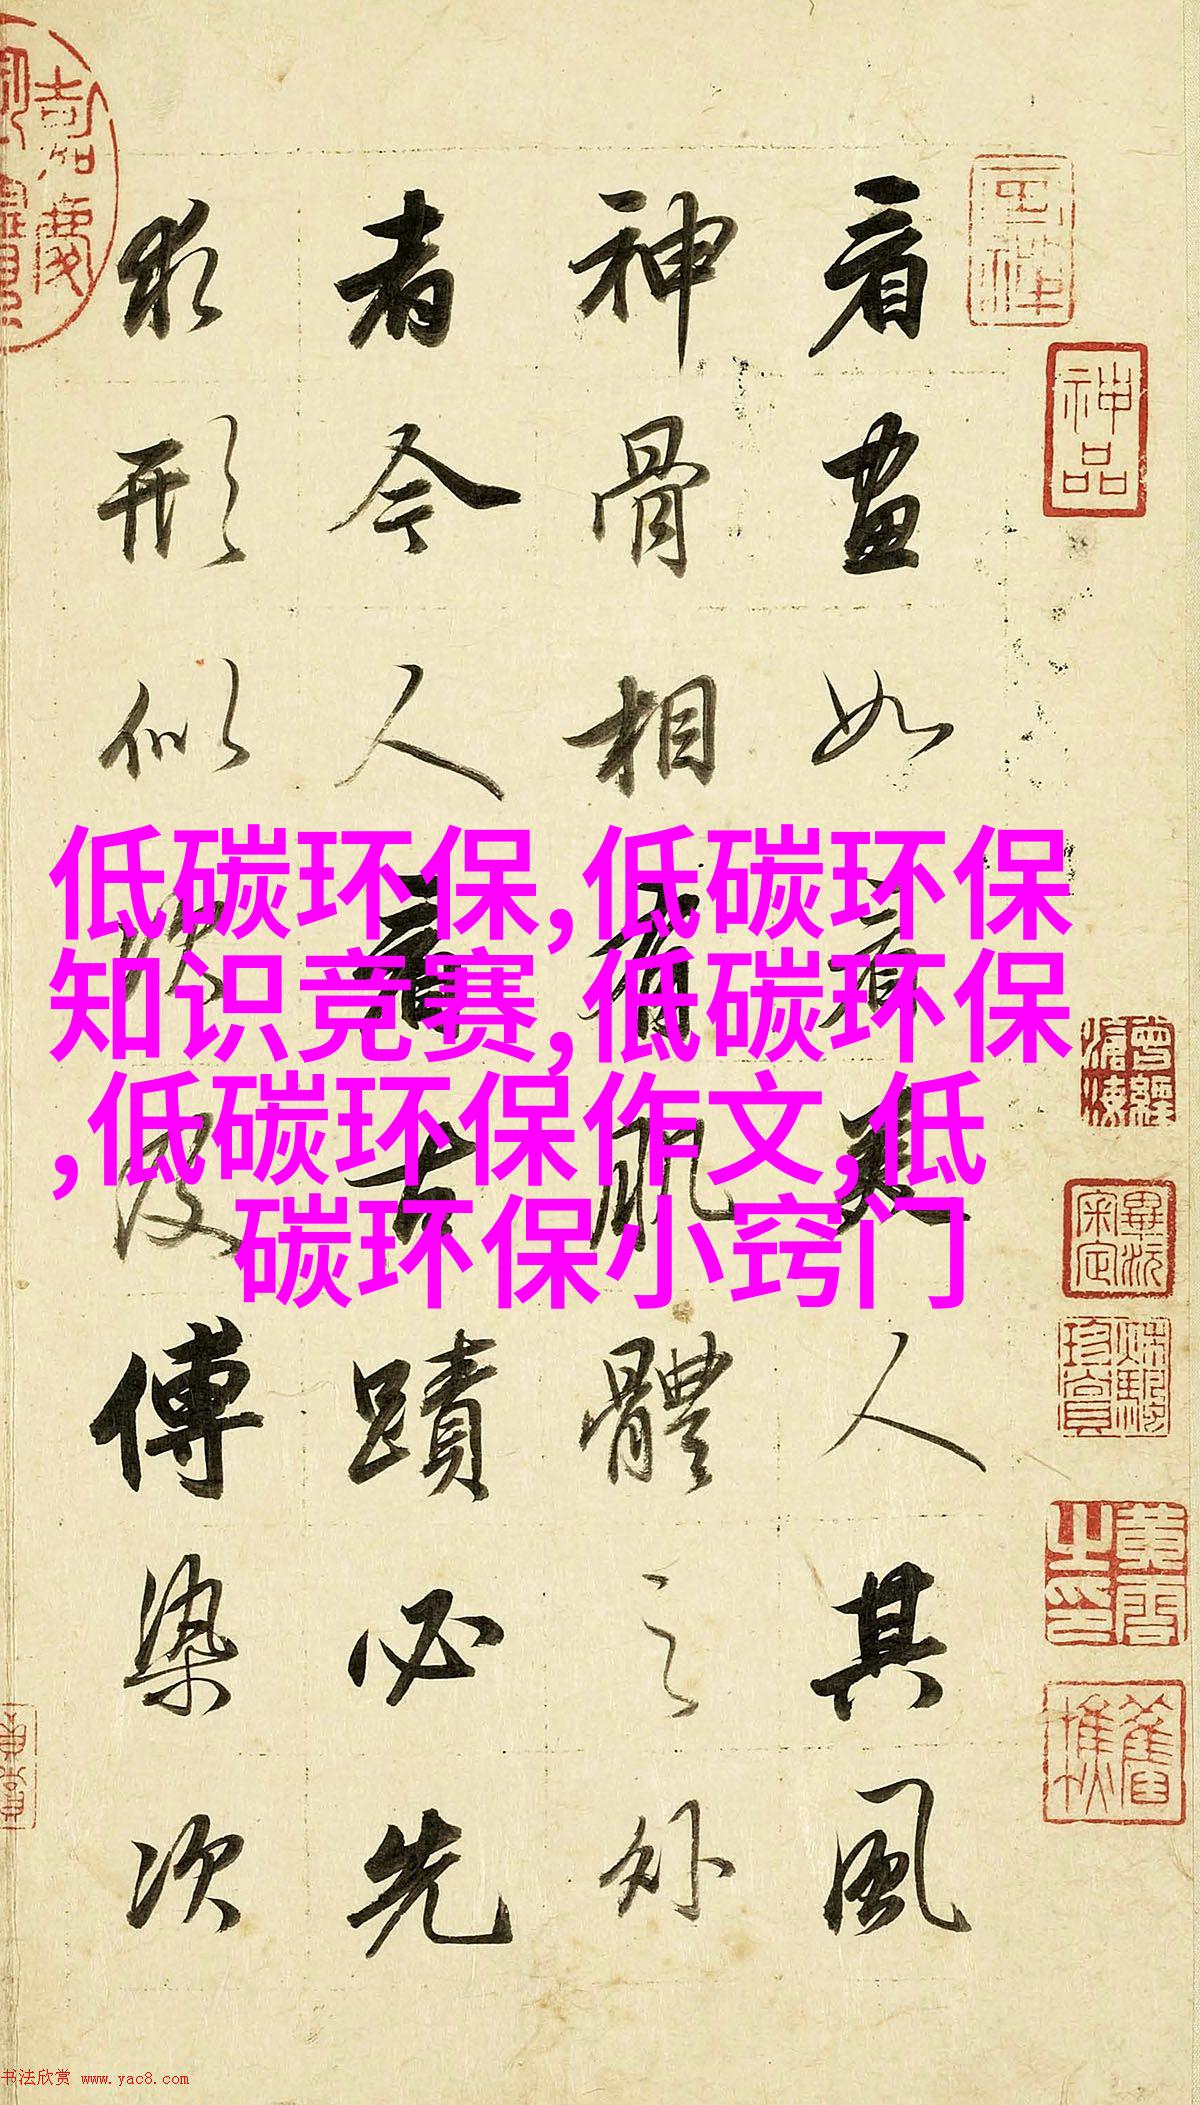 神品
看畫如看美人其風
神骨相有肌體之外
者今人看古蹟必先
求形似次及傅染次
嘉慶
低碳环保,低碳环保
知识竞赛,低碳环保
,低碳环保作文,低
碳环保小窍门
书法欣赏 www.yac8.com